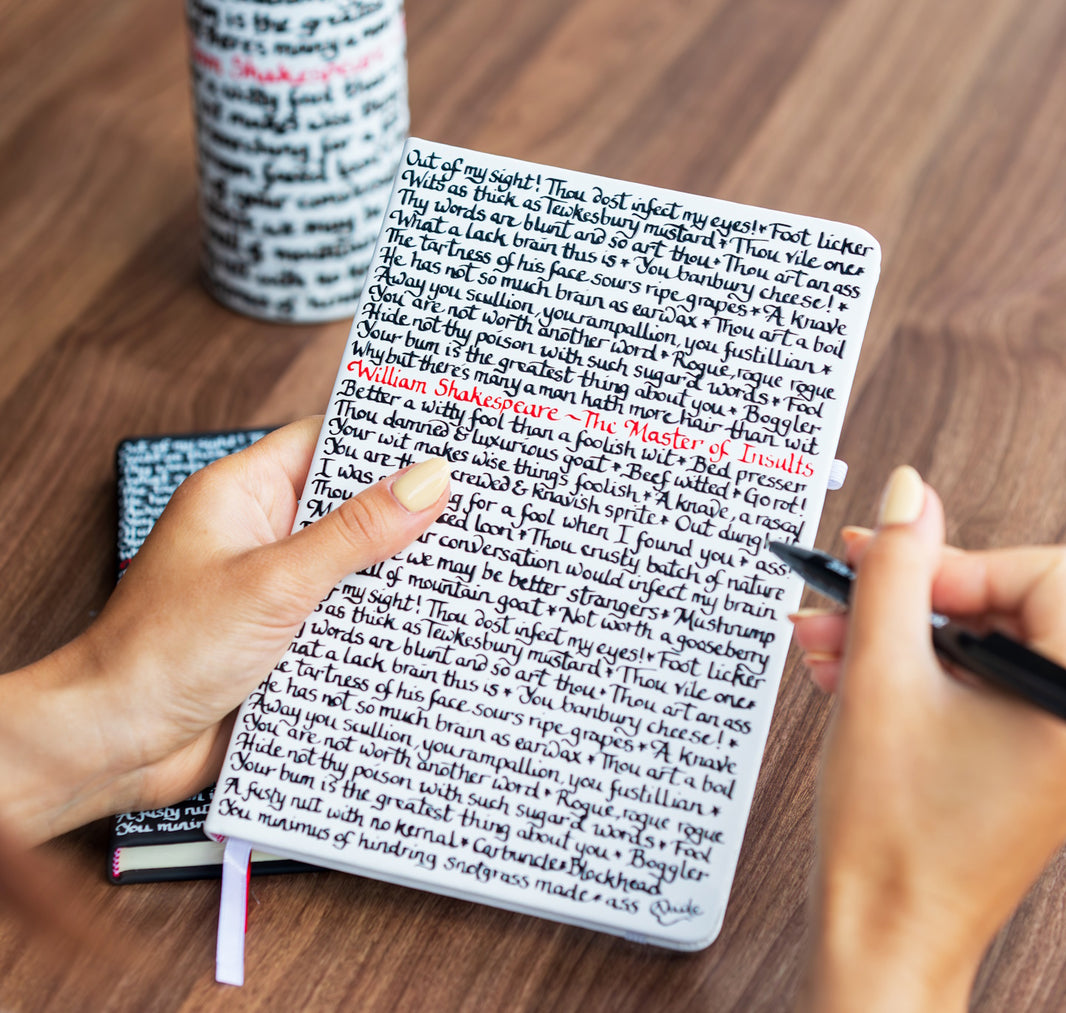 is the
there's many a
Shakespeare
a witty fool
makes wise
for a
we may be
of
Out of my sight! Thou dost infect my eyes! * Foot licker
Wits as thick as Tewkesbury mustard * Thou vile one *
Thy words are blunt and so art thou * Thou art an ass
What a lack brain this is * You banbury cheese! *
The tartness of his face sours ripe grapes * A knave
He has not so much brain as earwax * Thou art a boil
Away you scullion, you rampallion, you fustillian *
You are not worth another word * Rogue, rogue rogue
Hide not thy poison with such sugar'd words * Fool
Your bum is the greatest thing about you * Boggler
Why but there's many a man hath more hair than wit
William Shakespeare ~ The Master of Insults
Better a witty fool than a foolish wit * Bed presser
Thou damned & luxurious goat * Beef witted * Go rot!
Your wit makes wise things foolish * A knave, a rascal
You are & knavish sprite * Out
I was for a fool when I found you * ass
Thou loon * Thou crusty batch of nature
conversation would infect my brain
we may be better strangers * Mushrump
of mountain goat * Not worth a gooseberry
my sight! Thou dost infect my eyes! * Foot licker
as thick as Tewkesbury mustard * Thou vile one *
words are blunt and so art thou * Thou art an ass
a lack brain this is * You banbury cheese! *
The tartness of his face sours ripe grapes * A knave
He has not so much brain as earwax * Thou art a boil
Away you scullion, you rampallion, you fustillian *
You are not worth another word * Rogue, rogue rogue
Hide not thy poison with such sugar'd words * Fool
Your bum is the greatest thing about you * Boggler
A fusty nut with no kernal * Carbuncle * Blockhead
You minimus of hindring snotgrass made * ass
A fusty nut
You